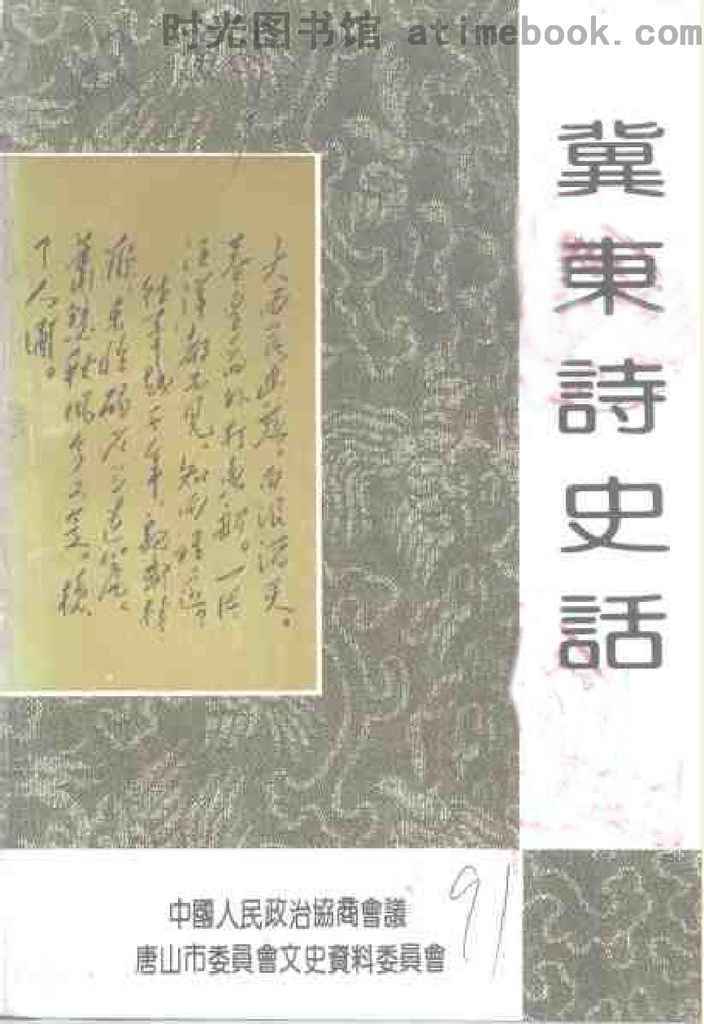 时光图书馆 atimebook.com
冀東詩史話
大雨落幽燕，白浪滔天。
秦皇島外打魚船。一片
汪洋都不見，知向誰邊。
往事越千年，魏武揮
鞭，東臨碣石有遺篇，
蕭瑟秋風今又是，換
了人間。
91
中國人民政治協商會議
唐山市委員會文史資料委員會